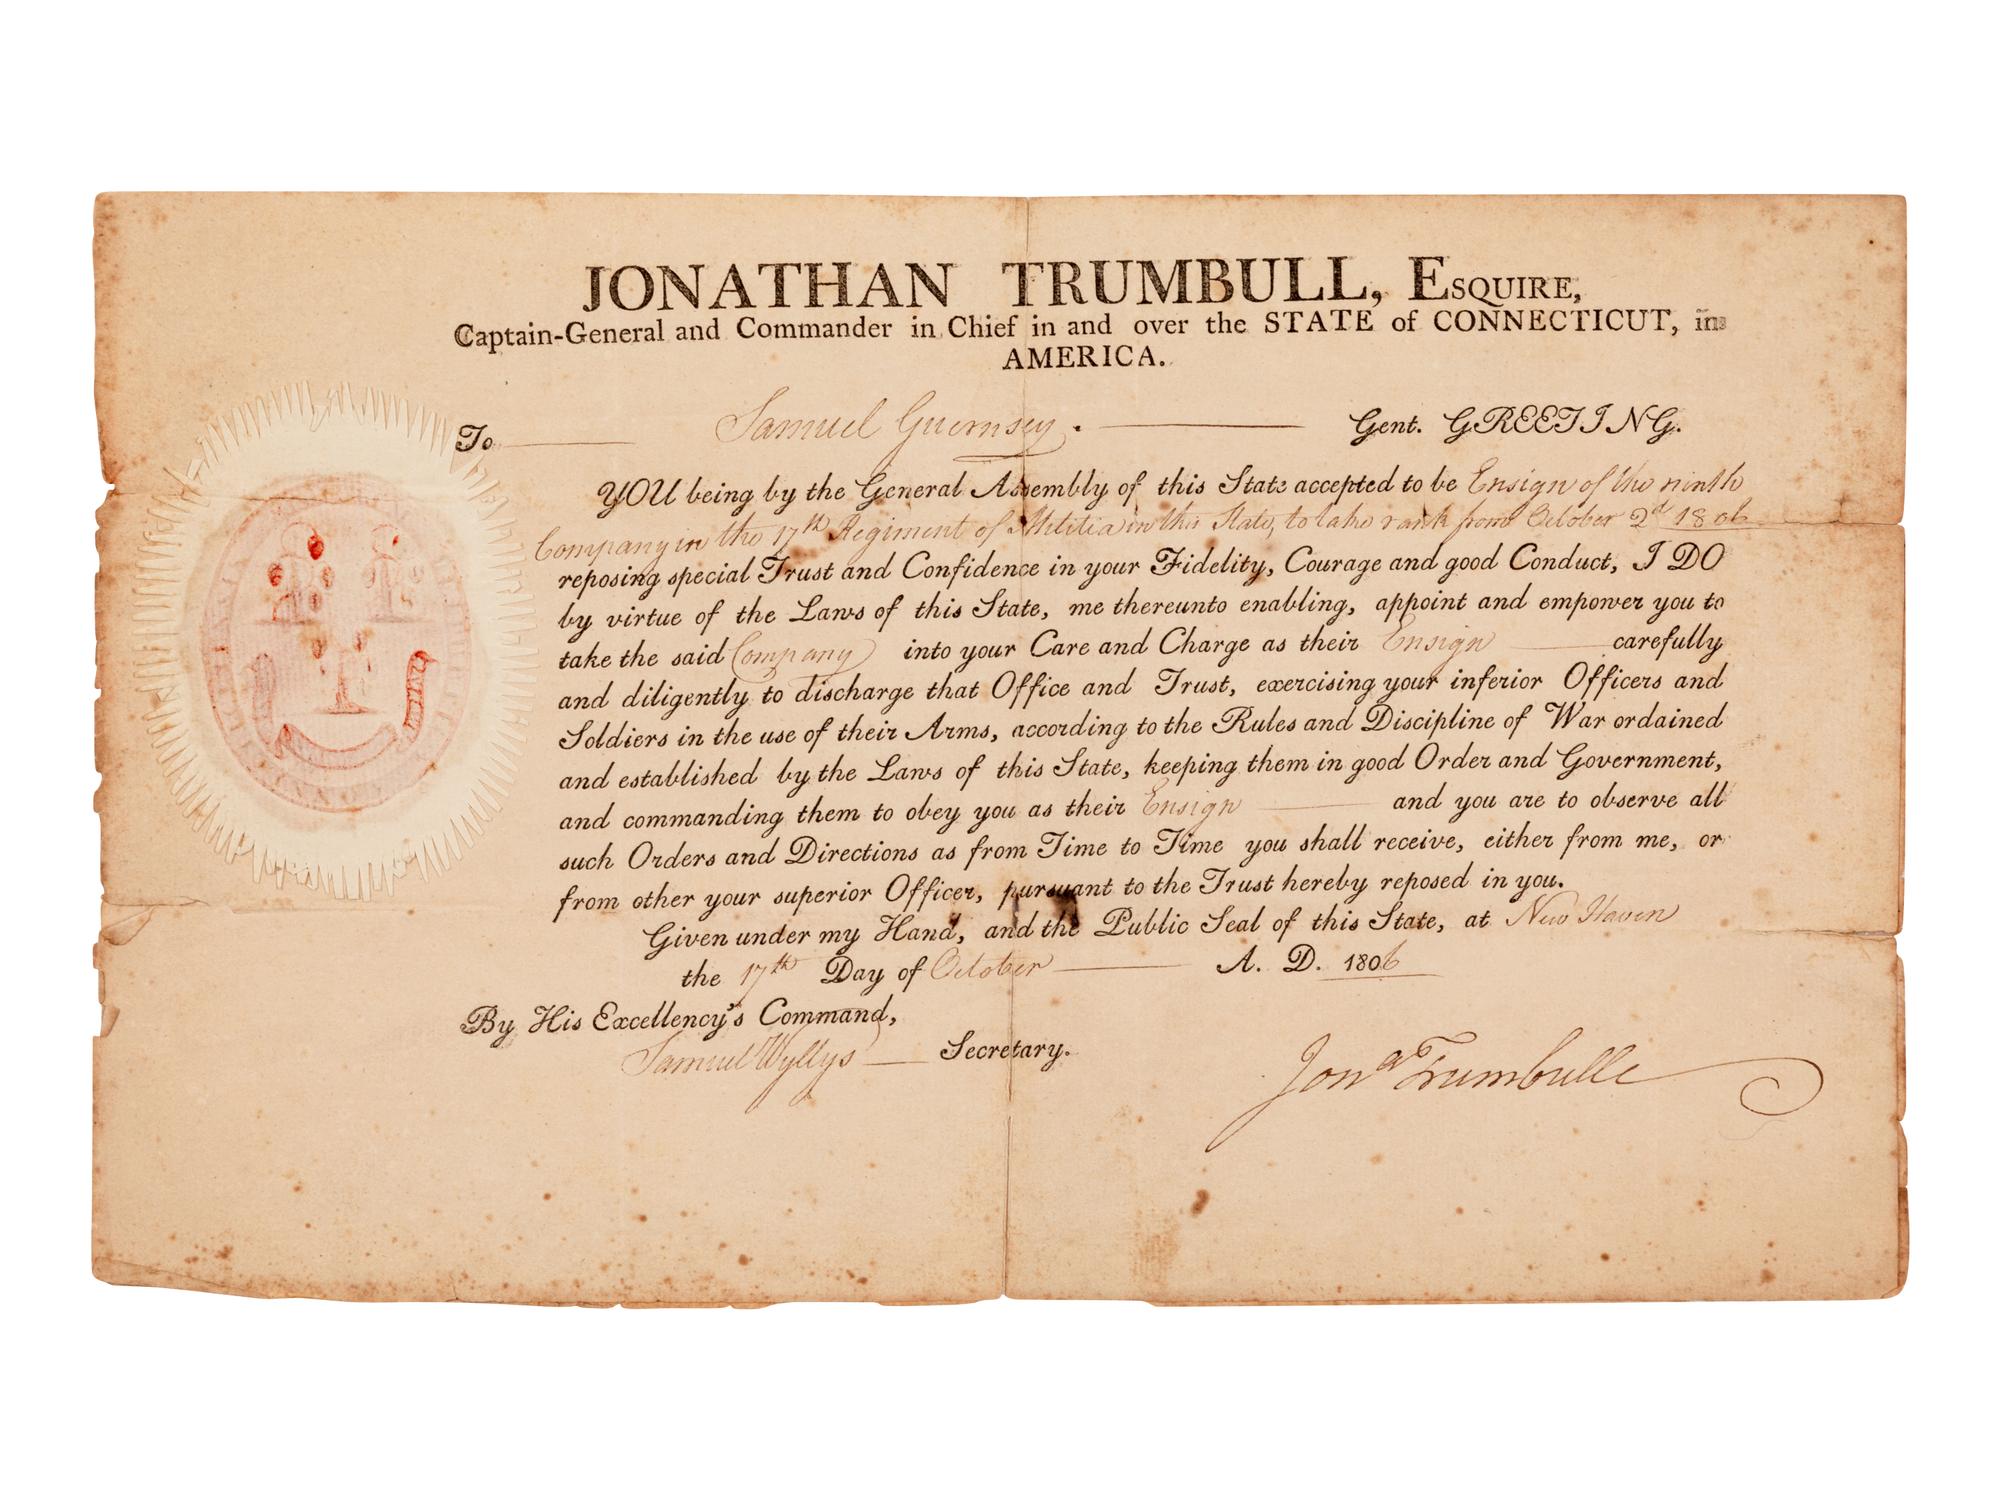 JONATHAN TRUMBULL, ESQUIRE,
Captain-General and Commander in Chief in and over the STATE of CONNECTICUT, in
AMERICA.
To Samuel Guernsey. Gent. GREETING.
YOU being by the General Assembly of this State accepted to be Ensign of the ninth
Company in the 17th Regiment of Militia in this State, to take rank from October 2d 1806
reposing special Trust and Confidence in your Fidelity, Courage and good Conduct, I DO
by virtue of the Laws of this State, me thereunto enabling, appoint and empower you to
take the said Company into your Care and Charge as their Ensign carefully
and diligently to discharge that Office and Trust, exercising your inferior Officers and
Soldiers in the use of their Arms, according to the Rules and Discipline of War ordained
and established by the Laws of this State, keeping them in good Order and Government,
and commanding them to obey you as their Ensign and you are to observe all
such Orders and Directions as from Time to Time you shall receive, either from me, or
from other your superior Officer, pursuant to the Trust hereby reposed in you.
Given under my Hand, and the Public Seal of this State, at New Haven
the 17th Day of October A. D. 1806
By His Excellency's Command,
Samuel Wyllys Secretary.
Jona Trumbulle